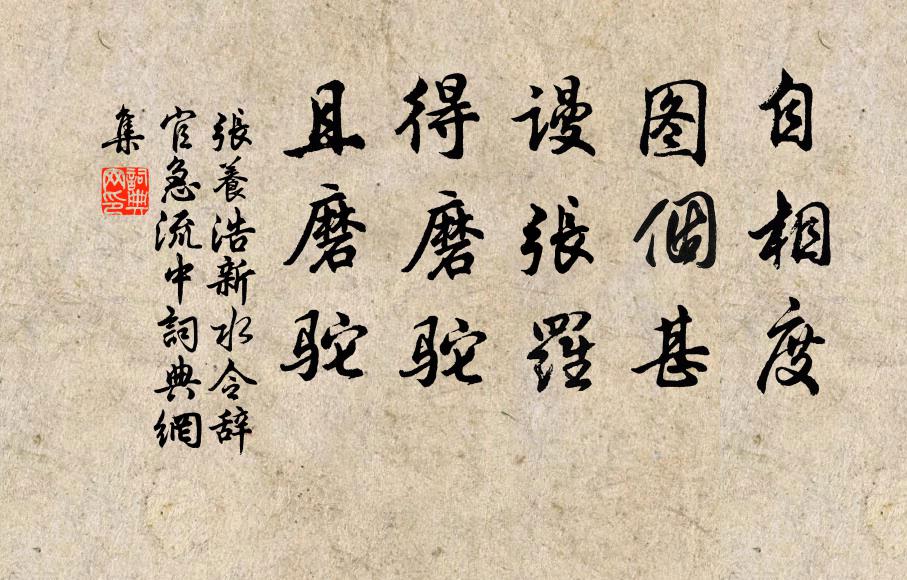 自相度
图個甚
谩張羅
得磨駝
且磨駝
張養浩新水令辞
官急流中詞典網
集
詞典
网印